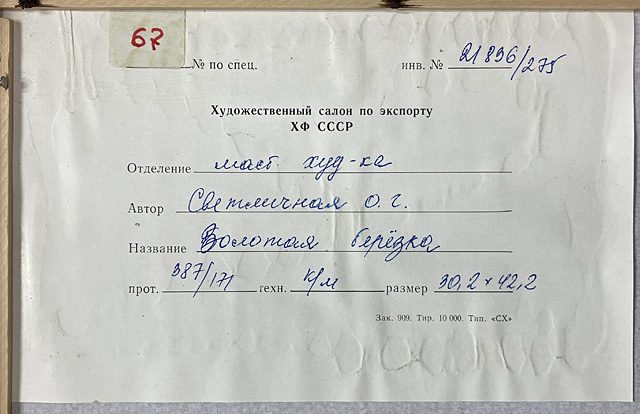 67
№ по спец. инв. № 21896/275
Художественный салон по экспорту
ХФ СССР
Отделение маст. худ-ка
Автор Светличная О. Г.
Название Золотая берёзка
прот. 387/171 техн. к/м размер 30,2 × 42,2
Зак. 909. Тир. 10 000. Тип. «СХ»